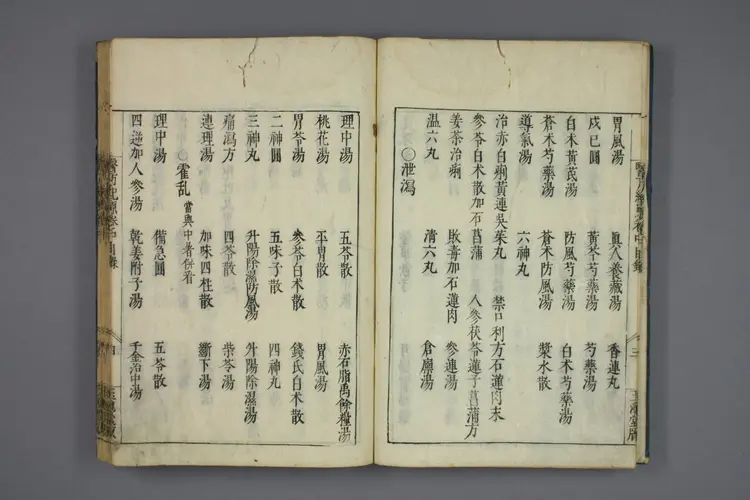 胃風湯 真人養藏湯 香連丸
戊巳圓 黃芩芍藥湯 芍藥湯
白朮黃芪湯 防風芍藥湯 白朮芍藥湯
蒼朮芍藥湯 蒼朮防風湯 漿水散
導氣湯 六神丸
治赤白痢黃連吳茱丸 禁口利方石蓮肉末
參苓白朮散加石菖蒲 人參茯苓蓮子菖蒲方
姜茶治痢 敗毒加石蓮肉 參連湯
温六丸 清六丸 倉廩湯
○泄瀉
理中湯 五苓散 赤石脂禹餘糧湯
桃花湯 平胃散 胃風湯
胃苓湯 參苓白朮散 錢氏白朮散
二神圓 五味子散 四神丸
三神丸 升陽除濕防風湯 升陽除濕湯
痛瀉方 四苓散 柴苓湯
連理湯 加味四柱散 斷下湯
○霍乱 當與中暑併看
理中湯 備急圓 五苓散
四逆加人參湯 乾姜附子湯 千金治中湯